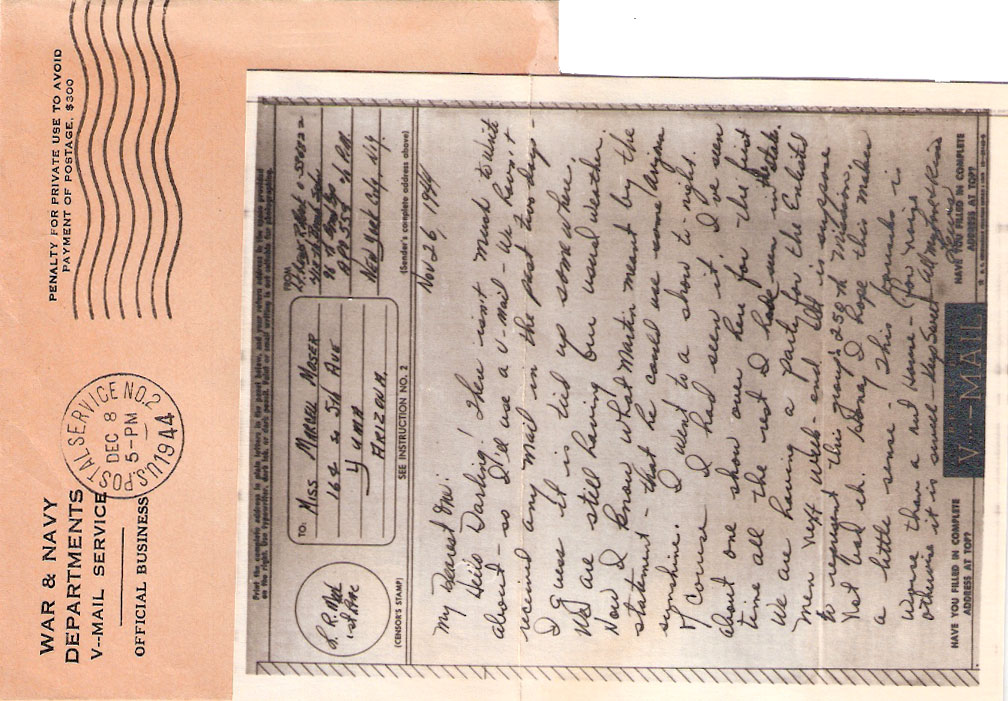 WAR & NAVY
DEPARTMENTS
V--MAIL SERVICE
OFFICIAL BUSINESS
U.S. POSTAL SERVICE NO. 2
DEC 8
5-PM
1944
PENALTY FOR PRIVATE USE TO AVOID
PAYMENT OF POSTAGE, $300
Print the complete address in plain letters in the panel below, and your return address in the space provided
on the right. Use typewriter, dark ink, or dark pencil. Faint or small writing is not suitable for photographing.
TO:
MISS MARY MOSER
168 So 5th AVE
YUMA
ARIZONA.
FROM
APO 557 % P.M.
New York City N.Y.
(CENSOR'S STAMP)
SEE INSTRUCTION NO. 2
(Sender's complete address above)
Nov 26, 1944
My Dearest One:
Hello Darling! There isn't much to write
about - so I'll use a V-mail - We haven't
received any mail in the past two days -
I guess it is tied up some where.
We are still having our usual weather.
Now I know what Martin meant by the
statement - that he could use some Arizona
sunshine. I went to a show to night.
Of course I had seen it. I've seen
about one show over here for the first
time all the rest I had seen in the States.
We are having a party for the Enlisted
men next week-end. It is suppose
to represent this group's 250th mission.
Not bad eh. Honey I hope this makes
a little sense - This
worse than a
otherwise it is swell - Keep Sweet All my love
HAVE YOU FILLED IN COMPLETE
ADDRESS AT TOP?
V--MAIL
HAVE YOU FILLED IN COMPLETE
ADDRESS AT TOP?